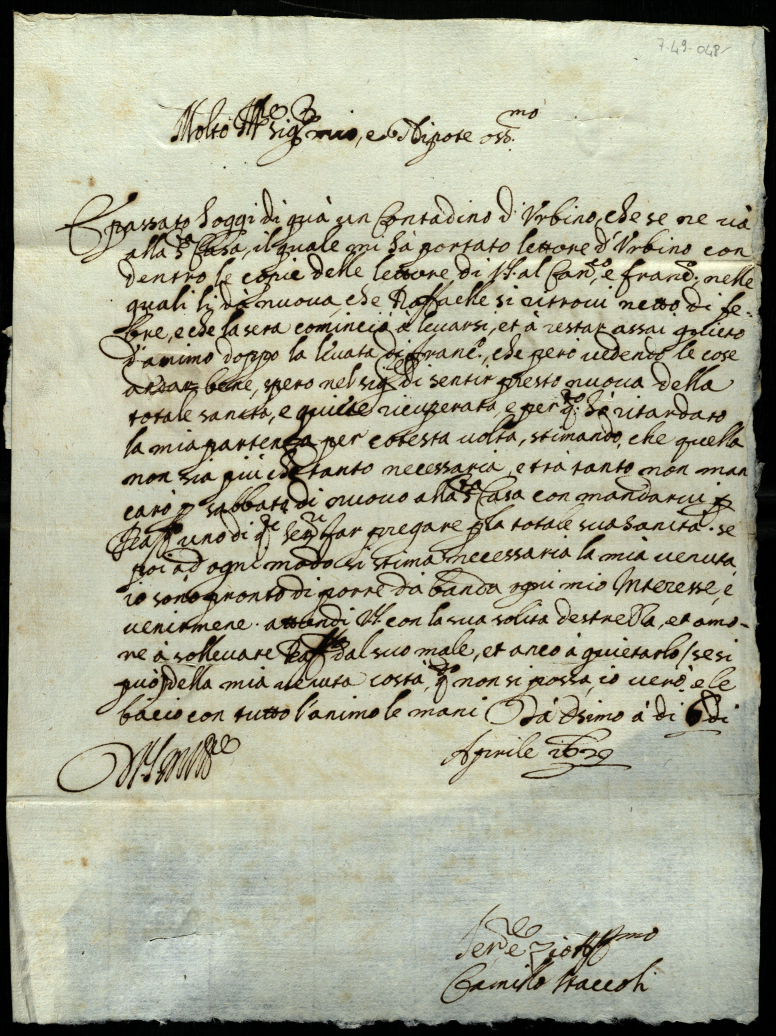 7-49-048
Molto Ill.re Sig.r mio, e Nipote oss.mo
È passato hoggi di quà un Contadino d'Urbino, che se ne và
alla S.ta Casa, il quale mi hà portato lettere d'Urbino con
dentro le copie delle lettere di V.S. al Can.co, e Franc.o, nelle
quali li dà nuova, che Raffaelle si ritrovi netto di fe-
bre, e che la sera cominciò à levarsi, et à restar assai quieto
d'animo doppo la levata di Franc.o, che però vedendo le cose
andar bene, spero nel Sig.re di sentir presto nuova della
totale sanità, e quiete ricuperata, e per q.to hò ritardato
la mia partenza per cotesta volta, stimando, che quella
non sia più che tanto necessaria, e trà tanto non man
carò p sabbato di nuovo alla S.ta Casa con mandarvi p
Raff.o uno di q.i far pregare p la totale sua sanità. se
poi ad ogni modo si stima necessaria la mia venuta,
io sono pronto di porre da banda ogni mio Interesse, e
venirmene. attendi V.S. con la sua solita destrezza, et amo-
re à sollevare Raff.lle dal suo male, et anco à quietarlo (se si
può) della mia venuta costà, q.do non si possa, io verò, e le
bacio con tutto l'animo le mani Dà Osimo à di 6 di
Aprile 1629
Di V.S. molto Ill.re
Ser.re e Zio Aff.mo
Camillo Staccoli